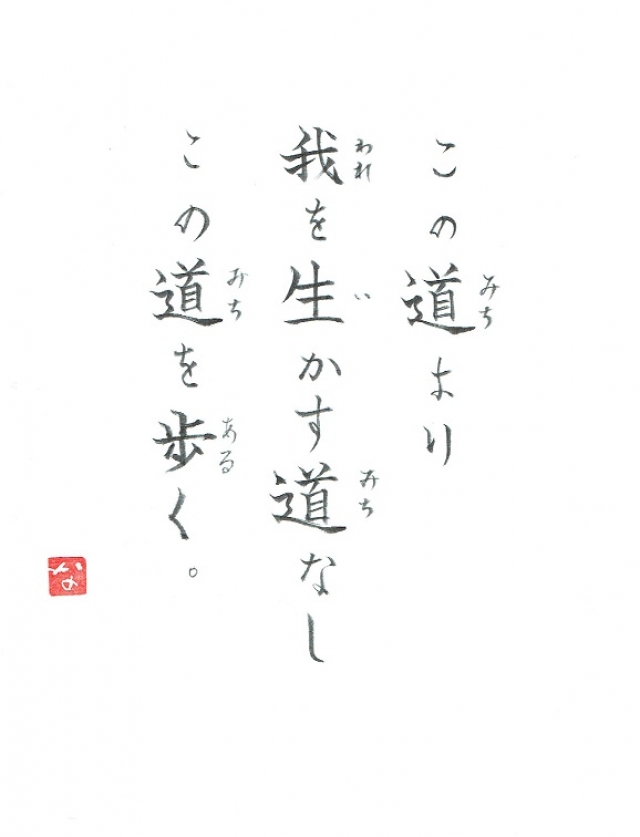 この道より
我を生かす道なし
この道を歩く。
みち
われ
い
みち
みち
ある